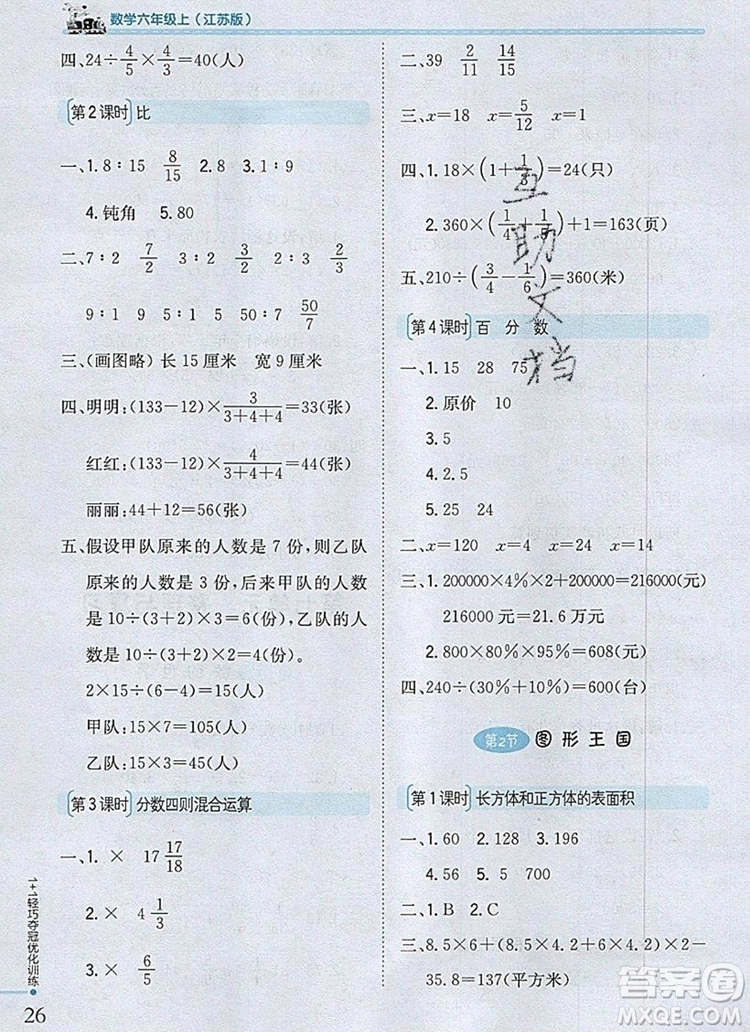 数学六年级上(江苏版)
四、24÷4/5×4/3=40(人)
第2课时 比
一、1. 8∶15 8/15 2. 8 3. 1∶9
4. 钝角 5. 80
二、7∶2 7/2 3∶5 3/5
9∶1 5 9∶1 5 50∶7 50/7
三、(画图略) 长 15 厘米 宽 9 厘米
四、明明:(133-12)×3/(3+4+4)=33(张)
红红:(133-12)×4/(3+4+4)=44(张)
丽丽:44+12=56(张)
五、假设甲队原来的人数是 7 份,则乙队
原来的人数是 3 份,后来甲队的人数
是 10÷(3+2)×3=6(份),乙队的人
数是 10÷(3+2)×2=4(份)。
2×15÷(6-4)=15(人)
甲队:15×7=105(人)
乙队:15×3=45(人)
第3课时 分数四则混合运算
一、1. × 17 17/18
2. × 4 1/3
3. × 6/5
二、39 2/11 14/15
三、x=18 x=5/12 x=1
四、1. 18×(1+1/3)=24(只)
2. 360×(1/4+1/5)+1=163(页)
五、210÷(3/4-1/6)=360(米)
第4课时 百分数
一、1. 15 28 75
2. 原价 10
3. 5
4. 2.5
5. 25 24
二、x=120 x=4 x=24 x=14
三、1. 200000×4%×2+200000=216000(元)
216000 元=21.6 万元
2. 800×80%×95%=608(元)
四、240÷(30%+10%)=600(台)
第2节 图形王国
第1课时 长方体和正方体的表面积
一、1. 60 2. 128 3. 196
4. 56 5. 5 700
二、1. B 2. A 3. B
三、8.5×6+(8.5×4.2+6×4.2)×2-
35.8=137(平方米)
互助文档
1+1轻巧夺冠优化训练
26
答案圈
MXQE.COM